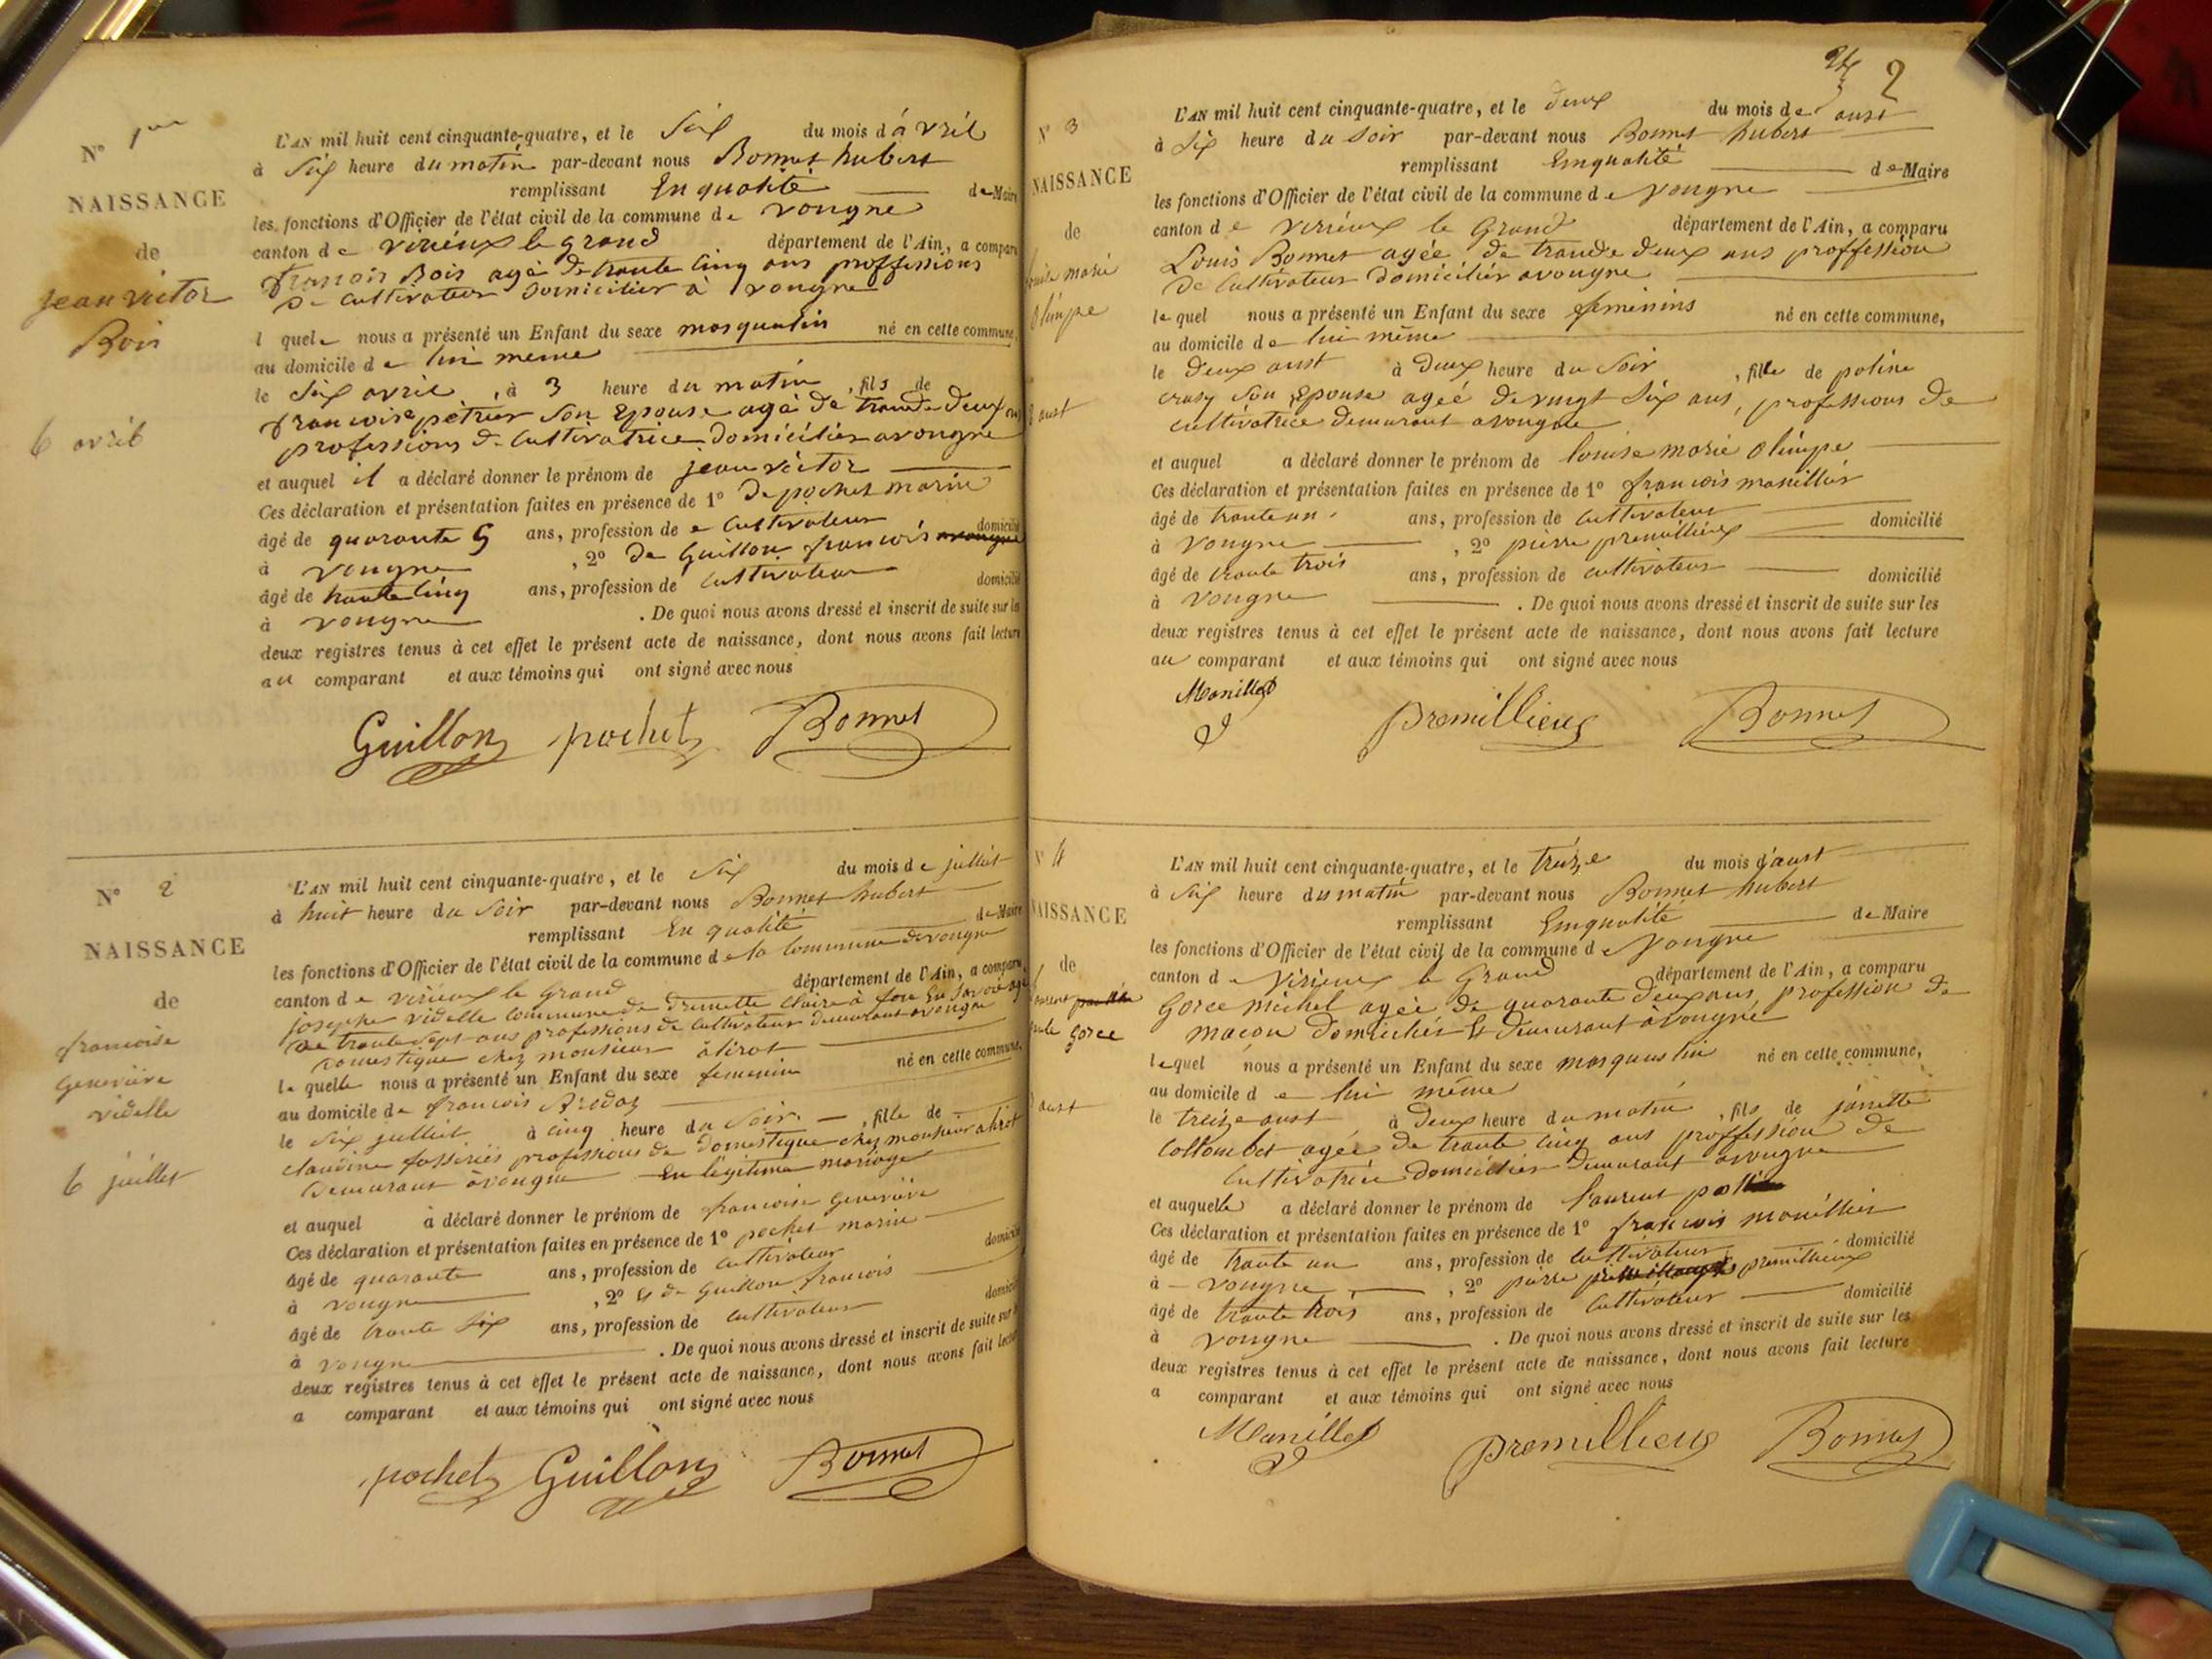 N° 1er
NAISSANCE
de
jean victor
Bois
6 avril
L'AN mil huit cent cinquante-quatre, et le Six du mois d'avril
à Six heure du matin par-devant nous Bonnet hubert
remplissant En qualité de Maire
les fonctions d'Officier de l'état civil de la commune de vongne
canton de virieux le grand département de l'Ain, a comparu
francois Bois agé de trante cinq ans proffessions
de cultivateur domicilier à vongne
lequel nous a présenté un Enfant du sexe masqualin né en cette commune,
au domicile de lui meme
le Six avril, à 3 heure du matin, fils de
francoise pètrier son Epouse agé de trande deux ans
professions de cultivatrice domicilier avongne
et auquel il a déclaré donner le prénom de jean victor
Ces déclaration et présentation faites en présence de 1° de pochet marin
âgé de quarante 5 ans, profession de cultivateur domicilié
à vongne, 2° de Guillon francois avongne
âgé de trante cinq ans, profession de cultivateur domicilié
à vongne. De quoi nous avons dressé et inscrit de suite sur les
deux registres tenus à cet effet le présent acte de naissance, dont nous avons fait lecture
au comparant et aux témoins qui ont signé avec nous
Guillon pochet Bonnet
N° 2
NAISSANCE
de
francoise
Genevière
videlle
6 juillet
L'AN mil huit cent cinquante-quatre, et le Six du mois de julliet
à huit heure du Soir par-devant nous Bonnet hubert
remplissant En qualité de Maire
les fonctions d'Officier de l'état civil de la commune de la commune de vongne
canton de virieux le Grand département de l'Ain, a comparu
josephe videlle commune de claire à En Savoie agé
de trante sept ans professions de cultivateur demeurant avongne
domestique chez monsieur
le quelle nous a présenté un Enfant du sexe feminin né en cette commune,
au domicile de francois
le Six julliet à cinq heure du Soir, fille de
claudine professions de domestique chez monsieur
demeurant àvongne En légitime mariage
et auquel à déclaré donner le prénom de francoise Genevière
Ces déclaration et présentation faites en présence de 1° pochet marin
âgé de quarante ans, profession de cultivateur domicilié
à vongne, 2° et de Guillon francois
âgé de trante Six ans, profession de cultivateur domicilié
à vongne. De quoi nous avons dressé et inscrit de suite sur les
deux registres tenus à cet effet le présent acte de naissance, dont nous avons fait lecture
a comparant et aux témoins qui ont signé avec nous
pochet Guillon Bonnet
2
N° 3
NAISSANCE
de
Louise marie
Olimpe
2 aust
L'AN mil huit cent cinquante-quatre, et le deux du mois de aust
à Six heure du Soir par-devant nous Bonnet hubert
remplissant Emqualité de Maire
les fonctions d'Officier de l'état civil de la commune de vongne
canton de virieux le Grand département de l'Ain, a comparu
Louis Bonnet agée de trande deux ans proffession
de cultivateur domicilier avongne
lequel nous a présenté un Enfant du sexe feminins né en cette commune,
au domicile de lui même
le deux aust à deux heure du Soir, fille de poline
crasy son Epouse agée de vingt Six ans, professions de
cultivatrice demeurant avongne
et auquel a déclaré donner le prénom de louise marie olimpe
Ces déclaration et présentation faites en présence de 1° francois manillier
âgé de trante un ans, profession de cultivateur domicilié
à vongne, 2° pierre premillieux
âgé de trante trois ans, profession de cultivateur domicilié
à vongne. De quoi nous avons dressé et inscrit de suite sur les
deux registres tenus à cet effet le présent acte de naissance, dont nous avons fait lecture
au comparant et aux témoins qui ont signé avec nous
Manillet Premillieux Bonnet
N° 4
NAISSANCE
de
Gorce
aust
L'AN mil huit cent cinquante-quatre, et le treize du mois d'aust
à Six heure du matin par-devant nous Bonnet hubert
remplissant Emqualité de Maire
les fonctions d'Officier de l'état civil de la commune de vongne
canton de virieux le Grand département de l'Ain, a comparu
Gorce michel agée de quarante deux ans, profession de
macon domicilier Et demeurant àvongne
lequel nous a présenté un Enfant du sexe masqueulin né en cette commune,
au domicile de lui même
le treize aust à deux heure du matin, fils de janette
Collombet agée de trante cinq ans proffession de
cultivatrice domicilier demeurant avongne
et auquelle a déclaré donner le prénom de laurent
Ces déclaration et présentation faites en présence de 1° francois manillier
âgé de trante un ans, profession de cultivateur domicilié
à vongne, 2° pierre premillieux
âgé de trante trois ans, profession de cultivateur domicilié
à vongne. De quoi nous avons dressé et inscrit de suite sur les
deux registres tenus à cet effet le présent acte de naissance, dont nous avons fait lecture
a comparant et aux témoins qui ont signé avec nous
Manillet Premillieux Bonnet